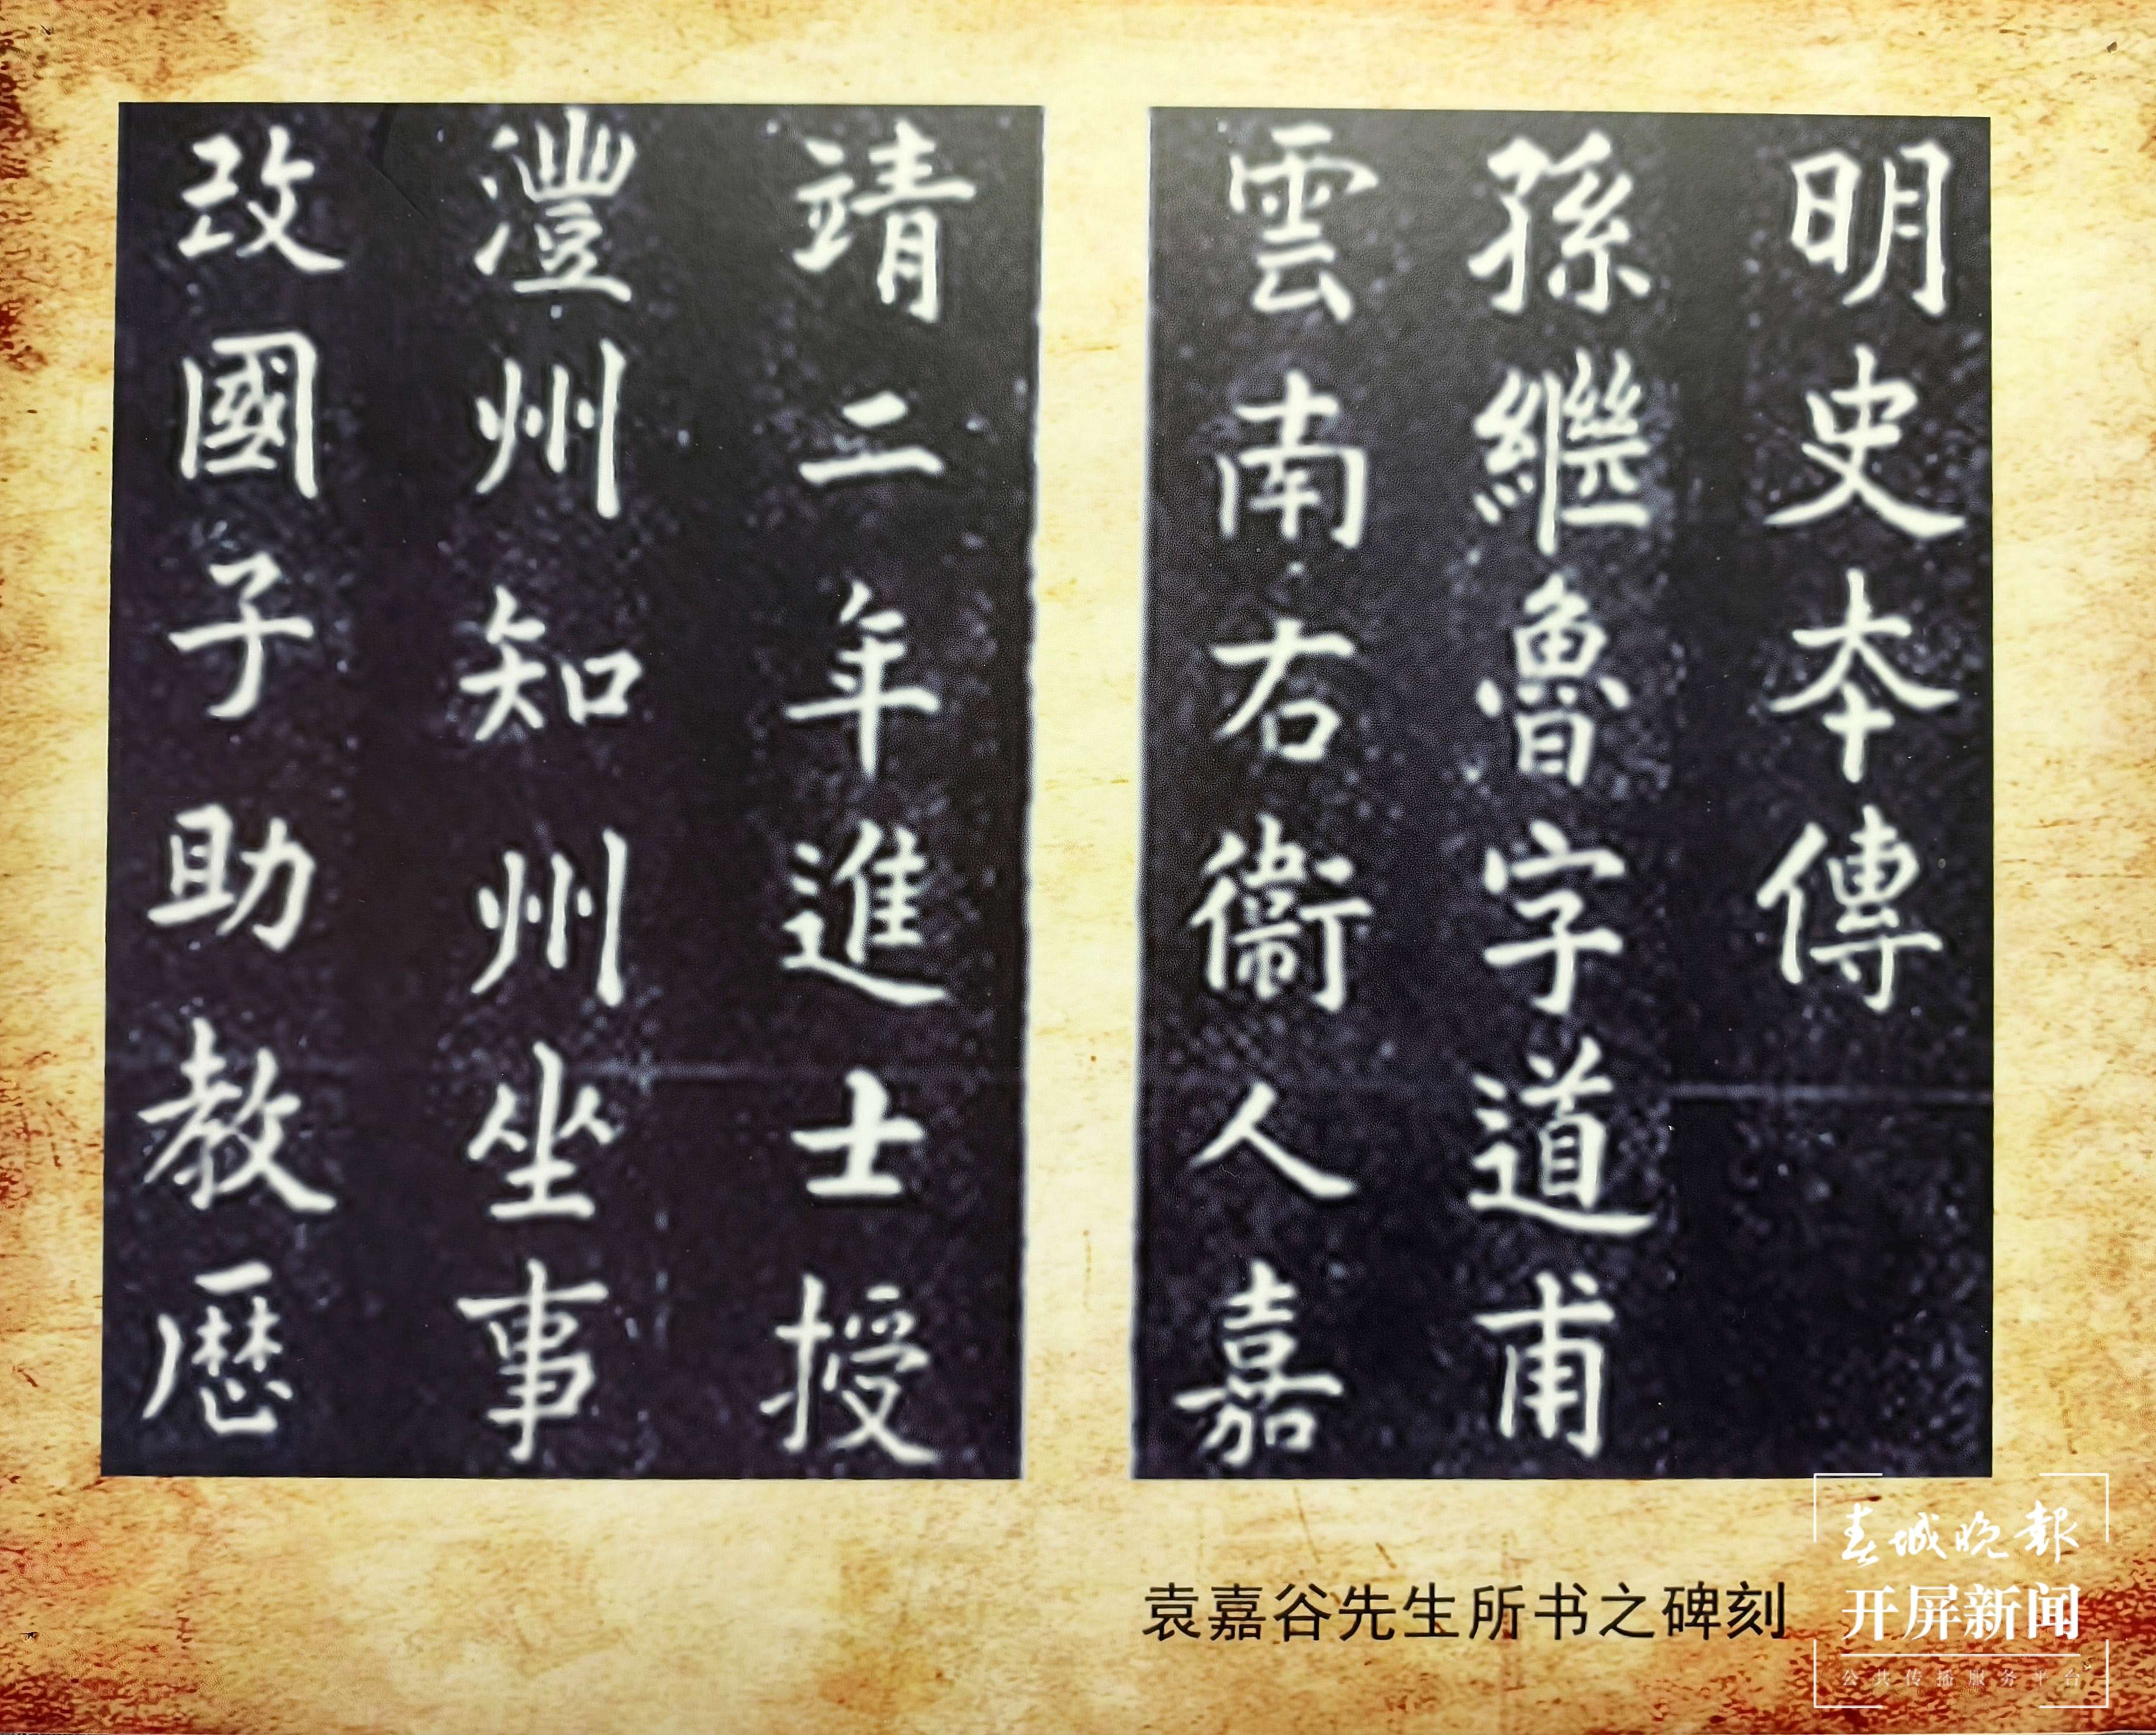 明史本傳
孫繼魯字道甫
雲南右衞人嘉
靖二年進士授
澧州知州坐事
改國子助教歷
袁嘉谷先生所书之碑刻
春城晚報
开屏新闻
公共传播服务平台